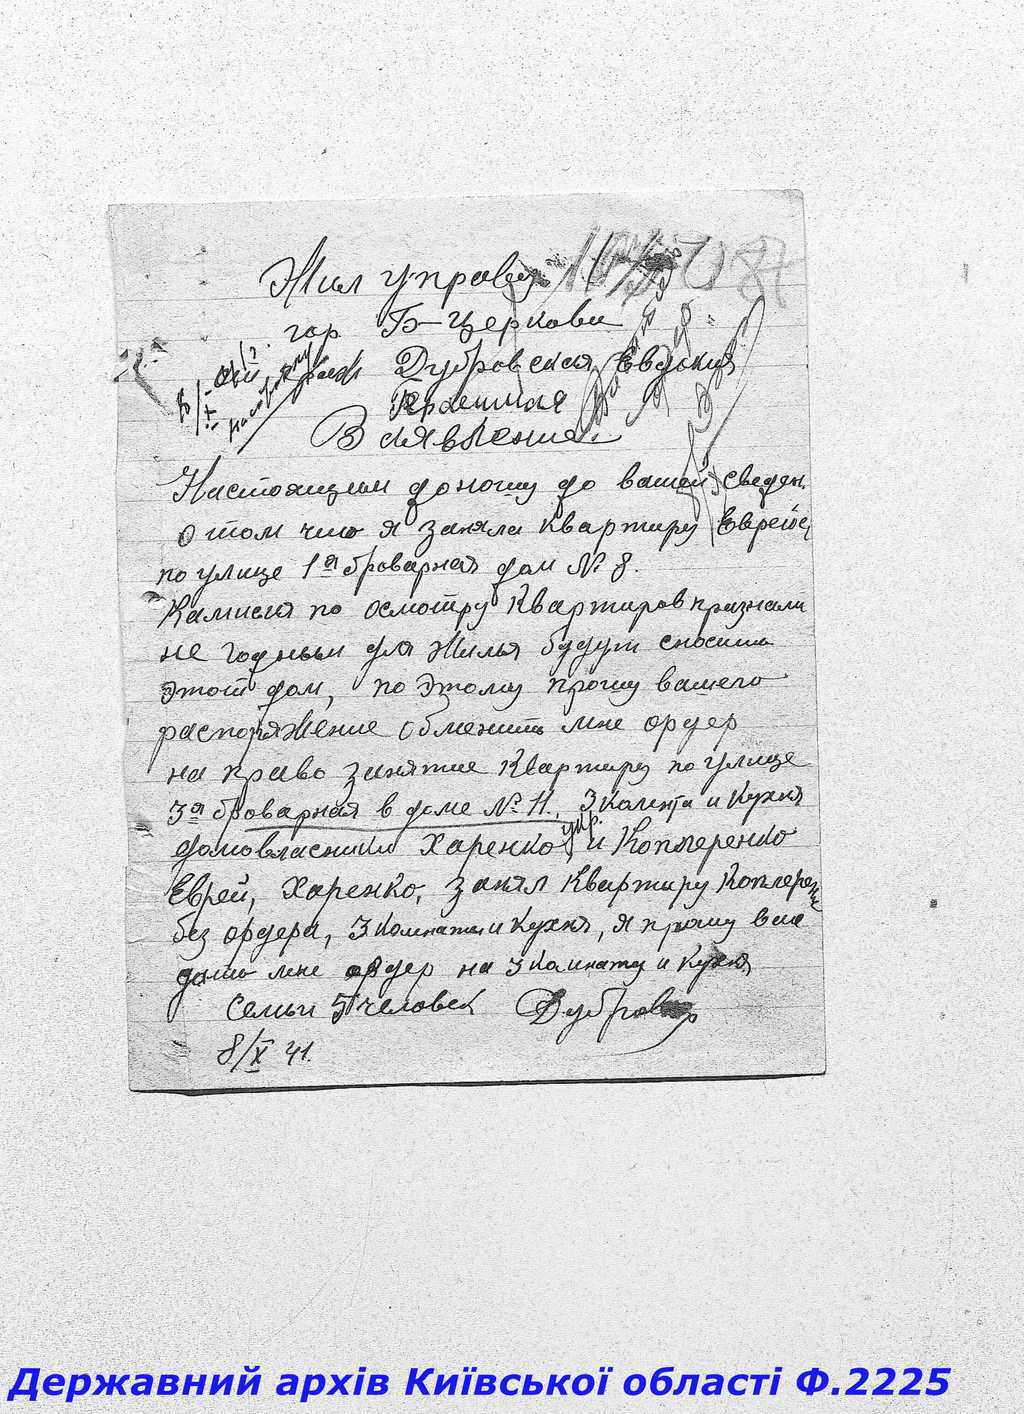 Жил управу
гор Б-Церкови
Дубровская Евдокия
Заявление
Настоящим доношу до вашей сведен.
о том что я заняла квартиру Еврейс
по улице 1ая броварная дом № 8.
Камисия по осмотру Квартиров признали
не годным для жилья будут сносить
этот дом, по этому прошу вашего
распоряжение обменить мне ордер
на право занятие Квартиру по улице
3ая броварная в доме № 11, 3 Комнта и Кухня
домовласники Харенко укр. и Коплеренко
Еврей, Харенко, занял Квартиру Коплерен
без ордера, 3 комнаты и Кухня, я прошу вас
дать мне ордер на 3 комнату и кухня
семьи 5 человек Дубров
8/X 41.
Державний архів Київської області Ф.2225